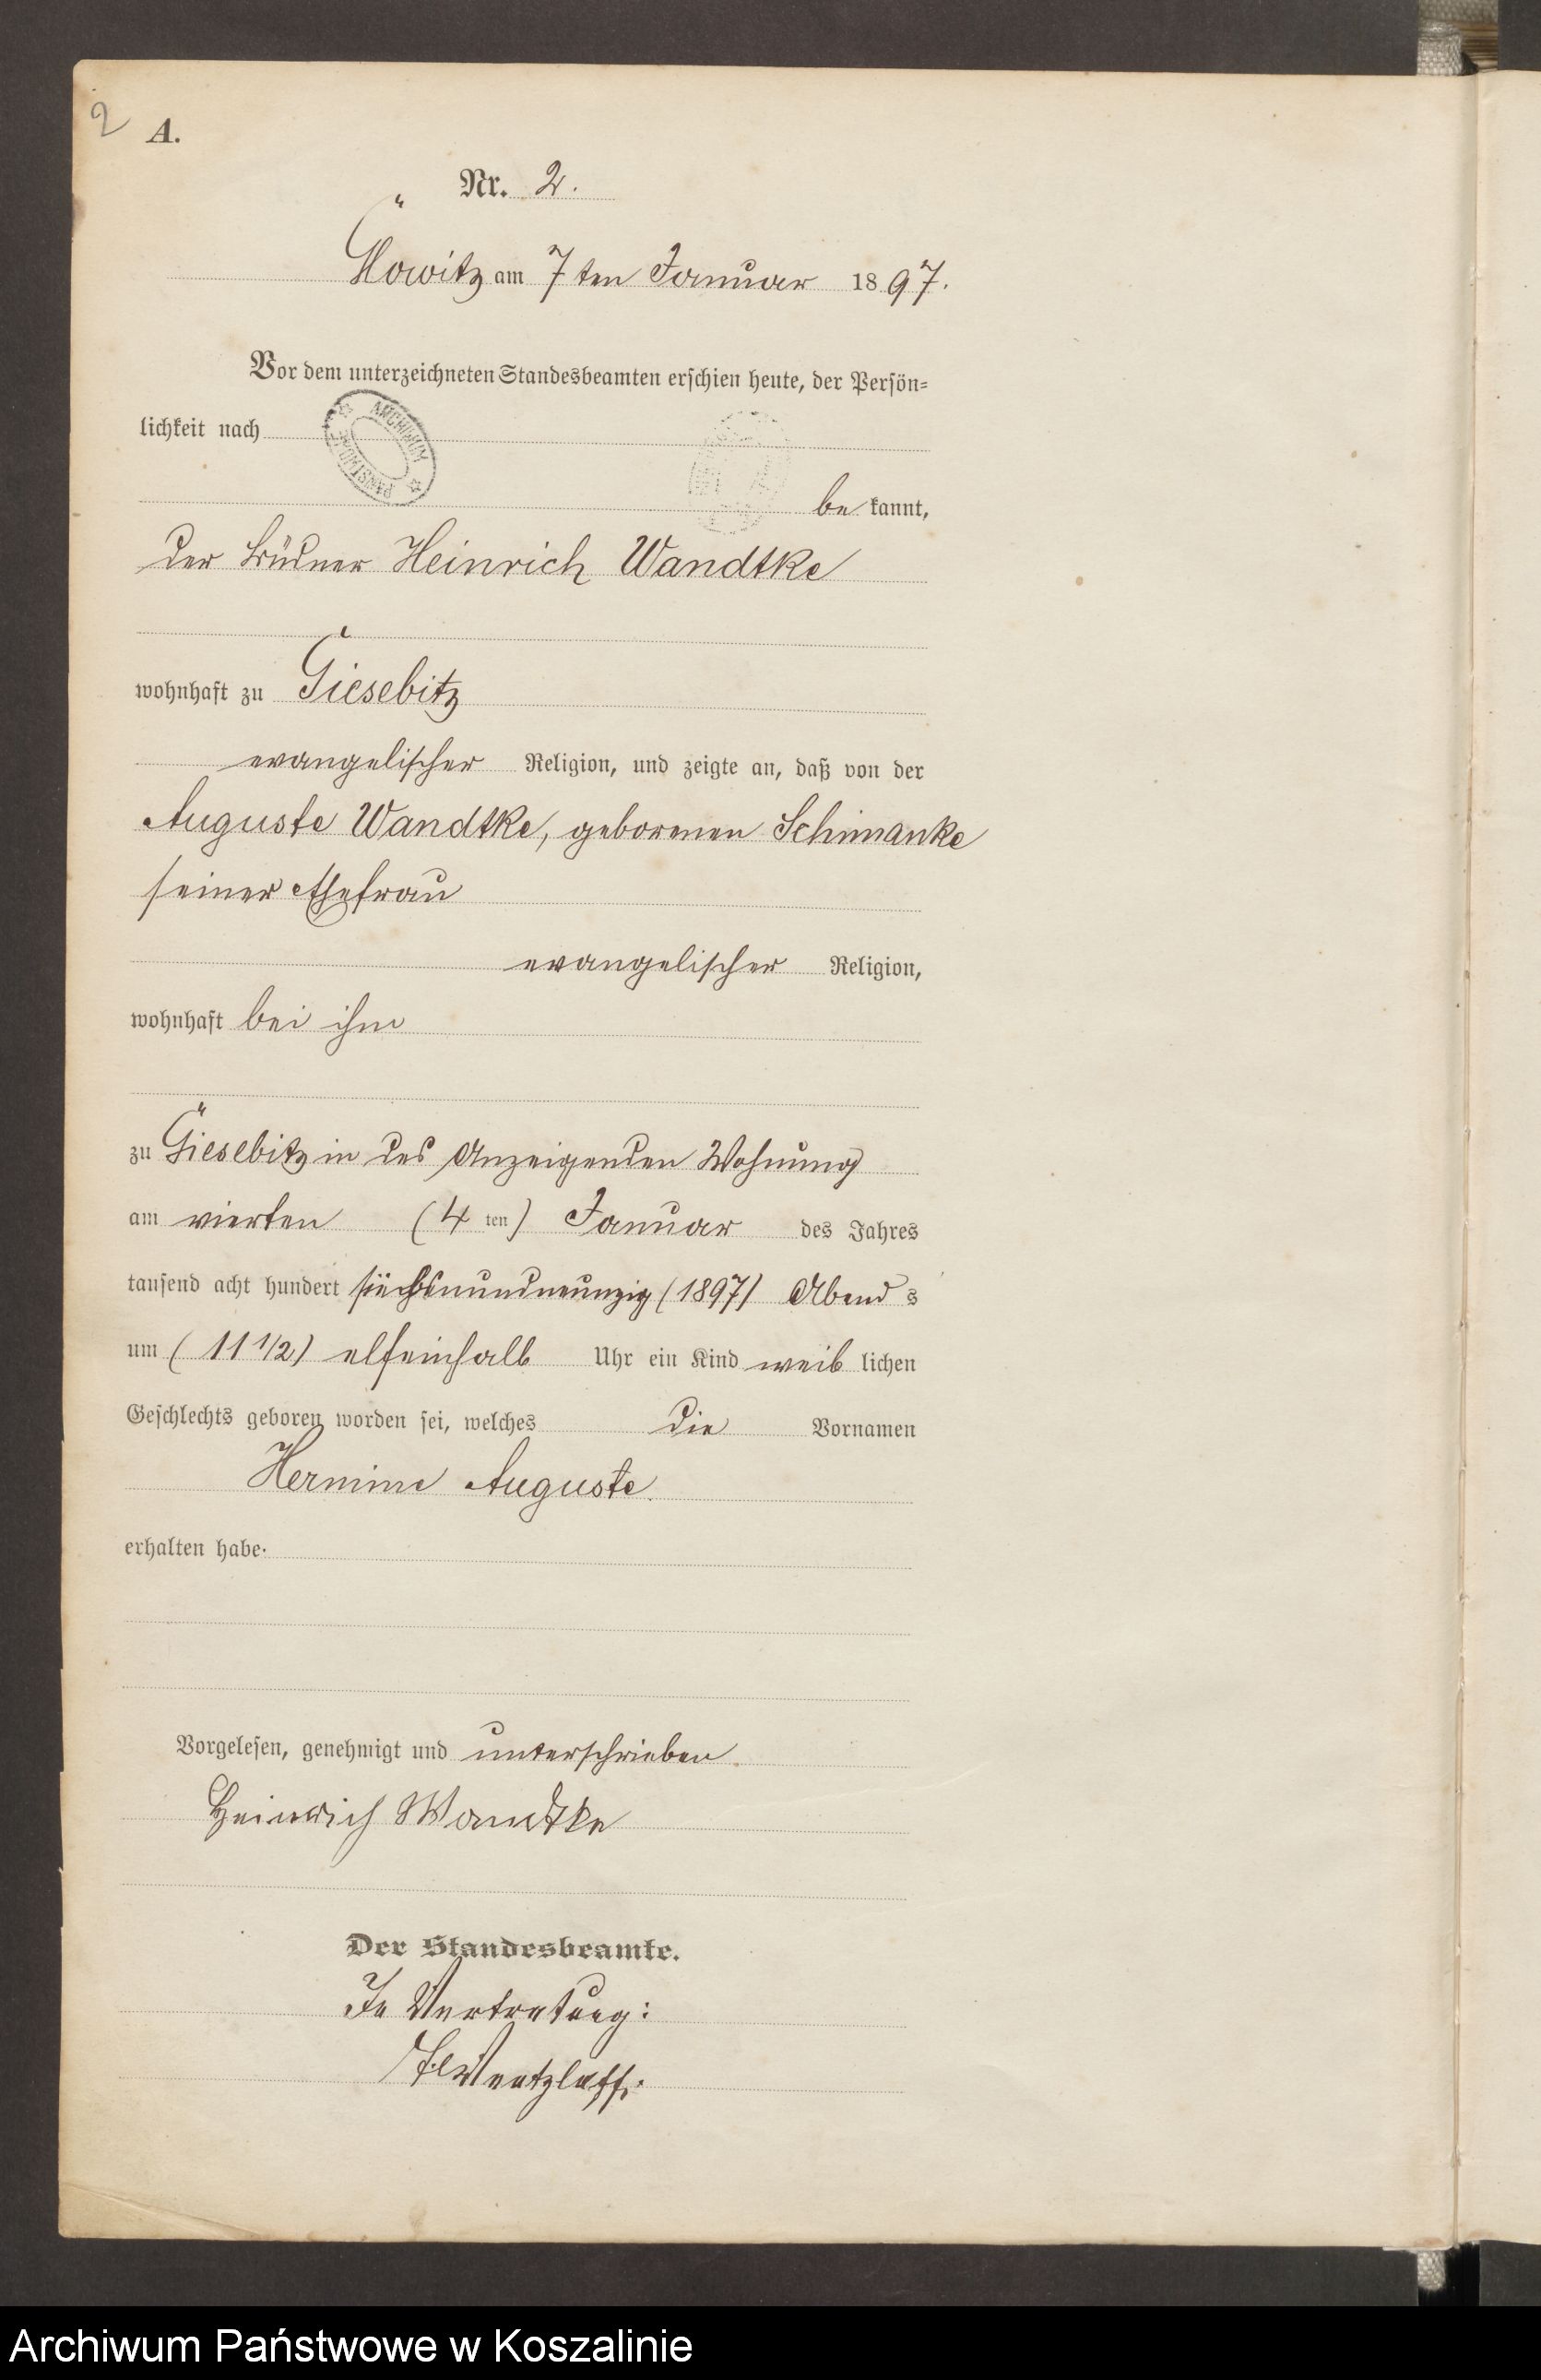 2
A.
Nr. 2.
Glowitz am 7ten Januar 1897.
Vor dem unterzeichneten Standesbeamten erschien heute, der Persön=
lichkeit nach
ARCHIWUM PAŃSTWOWE
be kannt,
der Büdner Heinrich Wandtke
wohnhaft zu Giesebitz
evangelischer Religion, und zeigte an, daß von der
Auguste Wandtke, geborenen Schimanke
seiner Ehefrau
evangelischer Religion,
wohnhaft bei ihm
zu Giesebitz in des Anzeigenden Wohnung
am vierten (4 ten) Januar des Jahres
tausend acht hundert (1897) Abend s
um (11 1/2) elfeinhalb Uhr ein Kind weib lichen
Geschlechts geboren worden sei, welches die Vornamen
Hermine Auguste.
erhalten habe.
Vorgelesen, genehmigt und unterschrieben.
Heinrich Wandtke
Der Standesbeamte.
In Vertretung:
Archiwum Państwowe w Koszalinie